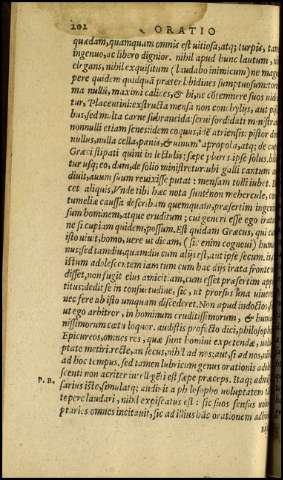 202 ORATIO
quædam, quamquam omnis est uitiosa, atq; turpis, tam
ingenuo, ac libero dignior. nihil apud hunc lautum,
elegans, nihil exquisitum (laudabo inimicum) ne mag
pere quidem quidquā præter libidines sumptuosum: toreu
ma nullū, maximi calices, & hi, ne
tur, Placentini: extructa mensa non conchyliis, aut pi
bus, sed multa carne subrancida: serui sordidati ministrā
nonnulli etiam senes: idem coquus, idē atriensis: pistor do
nullus, nulla cella: panis, & uinum à propola, atq; de cu
Græci stipati quini in lectulis: sæpe plures: ipse solus. bib
tur usq; eo, dum de solio ministretur. ubi galli cantum a
diuit, auum suum reuixisse putat: mensam tolli iubet.
cet aliquis, Vnde tibi hæc nota sunt? non mehercule,
tumeliæ caussa describam quemquam, præsertim ingen
sum hominem, atque eruditum; cui generi esse ego iratu
ne si cupiam quidem, possum. Est quidam Græcus, qui cu
isto uiuit, homo, uere ut dicam, (sic enim cognoui) hum
nus; sed tamdiu, quamdiu cum aliis est, aut ipse secum. is
istum adolescentem iam tum cum hac diis irata fronte
disset, non fugit eius amicitiam, cum esset præsertim app
titus: dedit se in consuetudinem, sic, ut prorsus una uiueret
nec fere ab isto unquam discederet. Non apud indoctos,
ut ego arbitror, in hominum eruditissimorum, & huma
nissimorum cætu loquor. audistis profecto dici, philosoph
Epicureos, omnes res, quæ sunt homini expetendæ, uolu
ptate metiri. recte, an secus, nihil ad nos: aut, si ad nos,
ad hoc tempus. sed tamen lubricum genus orationis adul
scenti non acriter intelligēti est sæpe præceps. Itaq; adm
P. B. sarius iste, simulatq; audiuit a philosopho uoluptatem
tepere laudari, nihil expiscatus est: sic suos sensus uolu
ptarios omnes incitauit, sic ad illius hāc orationem adhin